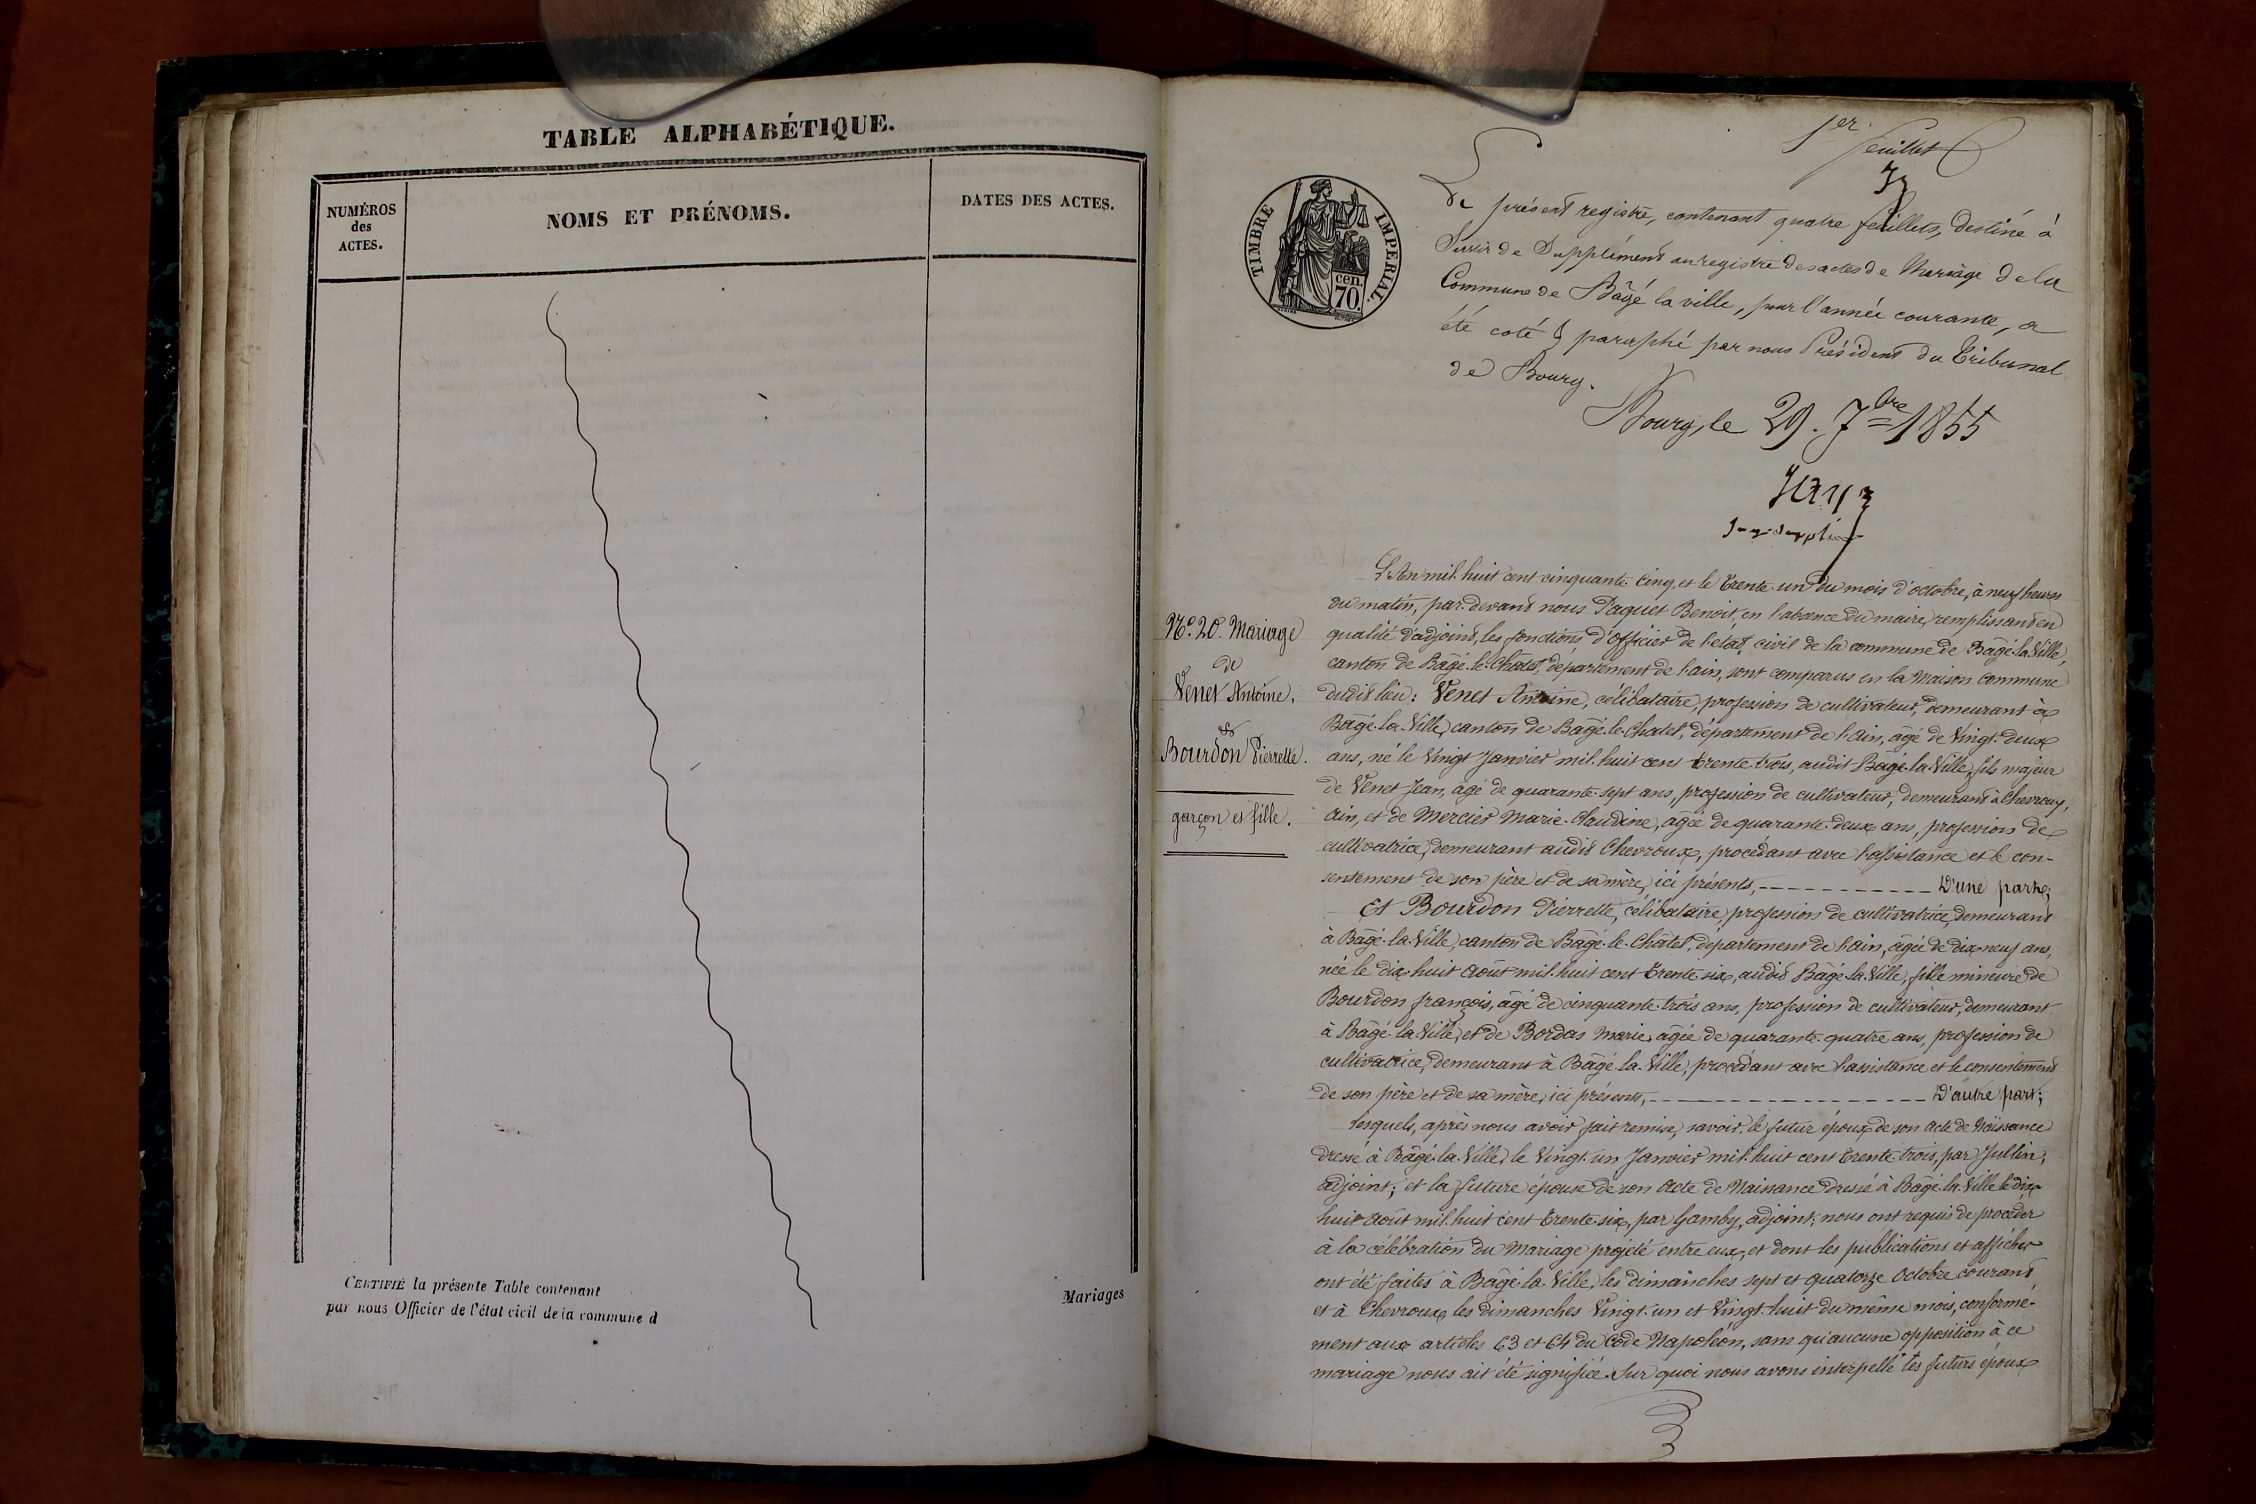 TABLE ALPHABÉTIQUE.
NUMÉROS
des
ACTES.
NOMS ET PRÉNOMS.
DATES DES ACTES.
CERTIFIÉ la présente Table contenant
Mariages
par nous Officier de l'état civil de la commune d
1er feuillet
TIMBRE IMPÉRIAL.
cen.
70.
Le présent registre, contenant quatre feuillets, destiné à
Servir de Supplément au registre des actes de Mariage de la
Commune de Bâgé la ville, pour l'année courante, a
été coté & paraphé par nous Président du Tribunal
de Bourg.
Bourg, le 29. 7bre 1855
No. 20. Mariage
de
Venet Antoine.
&
Bourdon Pierrette.
garçon et fille.
L'An mil. huit cent cinquante. Cinq, et le trente. un du mois d'octobre, à neuf heures
du matin, par. devant nous Paquet Benoit, en l'absence du maire, remplissant en
qualité d'adjoint, les fonctions d'Officier de l'état civil de la commune de Bâgé. la. Ville,
canton de Bâgé. le. Châtel, département de l'ain, sont comparus en la Maison Commune
dudit lieu: Venet Antoine, célibataire, profession de cultivateur, demeurant à
Bâgé. la. Ville, canton de Bâgé. le. Chatel, département de l'ain, âgé de Vingt. deux
ans, né le Vingt Janvier mil. huit cent trente. trois, audit Bâgé. la. Ville, fils majeur
de Venet Jean, âgé de quarante. sept ans, profession de cultivateur, demeurant à Chevroux,
ain, et de Mercier Marie. Claudine, âgée de quarante. deux ans, profession de
cultivatrice, demeurant audit Chevroux, procédant avec l'assistance et le con-
sentement de son père et de sa mère, ici présents, ------------ D'une part;
Et Bourdon Pierrette, célibataire, profession de cultivatrice, demeurant
à Bâgé. la. Ville, canton de Bâgé. le. Châtel, département de l'ain, âgée de dix neuf ans,
née le dix huit août mil. huit cent trente. six, audit Bâgé. la. Ville, fille mineure de
Bourdon françois, âgé de cinquante. trois ans, profession de cultivateur, demeurant
à Bâgé. la. Ville, et de Bordas Marie, âgée de quarante. quatre ans, profession de
cultivatrice, demeurant à Bâgé. la. Ville, procédant avec l'assistance et le consentement
de son père et de sa mère, ici présents, ------------------ D'autre part;
lesquels, après nous avoir fait remise, savoir, le futur époux de son acte de Naissance
dressé à Bâgé. la. Ville, le Vingt. un Janvier mil. huit cent trente. trois, par Jullin,
adjoint; et la future épouse de son Acte de Naissance dressé à Bâgé. la. Ville le dix
huit août mil. huit cent trente. six, par Gamby, adjoint; nous ont requis de procéder
à la célébration du Mariage projeté entre eux, et dont les publications et affiches
ont été faites à Bâgé. la. Ville, les dimanches sept et quatorze Octobre courant,
et à Chevroux, les dimanches Vingt. un et Vingt. huit du même mois, conformé-
ment aux articles 63 et 64 du Code Napoléon, sans qu'aucune opposition à ce
mariage nous ait été signifiée. Sur quoi nous avons interpellé les futurs époux